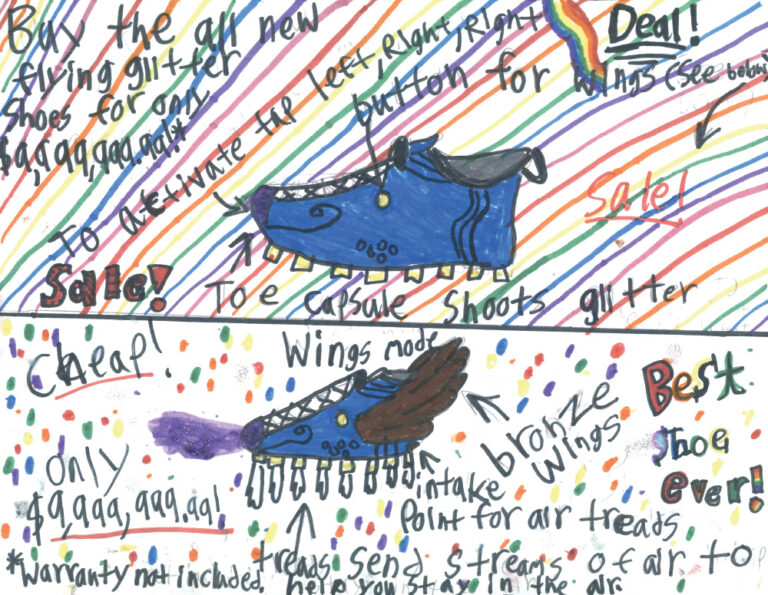 Buy the all new
flying glitter
shoes for only
$9,999,999.99!*
To activate tap left, Right, Right
button for wings (see below)
Deal!
Sale!
Sale!
Toe capsule shoots glitter
Cheap!
Wings mode
Best
shoe
ever!
bronze
wings
only
$9,999,999.99!
intake
point for air treads
treads send streams of air to
help you stay in the air.
*Warranty not included.